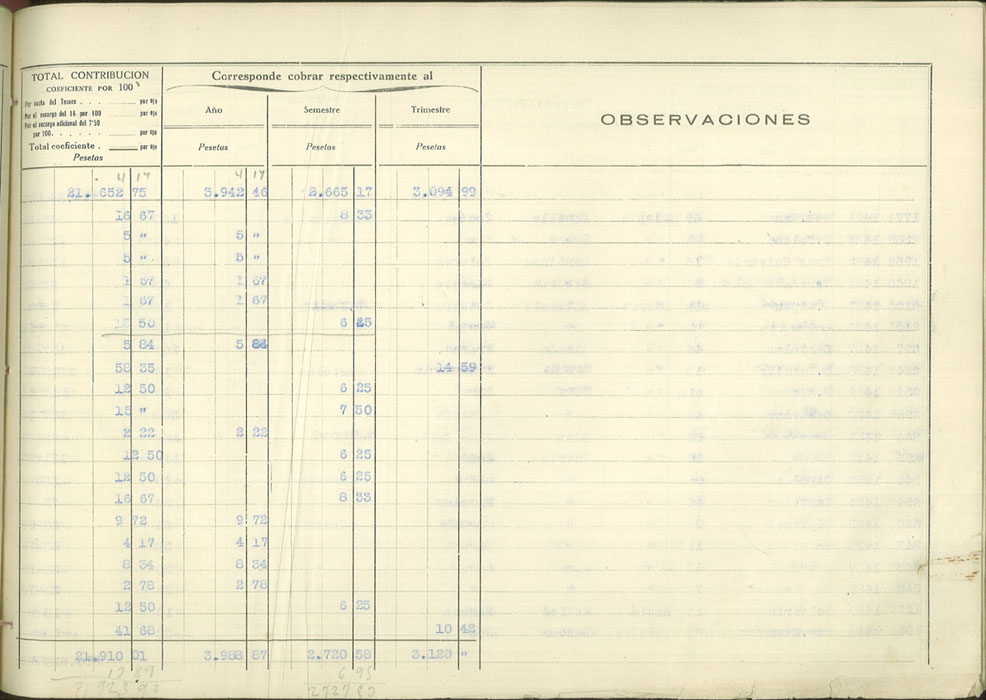 TOTAL CONTRIBUCION
COEFICIENTE POR 100
Por cuota del Tesoro . . . por 0|0
Por el recargo del 16 por 100 por 0|0
Por el recargo adicional del 7'50
por 100. . . . . por 0|0
Total coeficiente . por 0|0
Pesetas
Corresponde cobrar respectivamente al
Año Semestre Trimestre
Pesetas Pesetas Pesetas
OBSERVACIONES
4 17 4 17
21.652 75 3.942 46 2.665 17 3.094 99
16 67 8 33
5 " 5 "
5 " 5 "
1 67 1 67
1 67 1 67
12 50 6 25
5 84 5 84
58 35 14 59
12 50 6 25
15 " 7 50
2 22 2 22
12 50 6 25
12 50 6 25
16 67 8 33
9 72 9 72
4 17 4 17
8 34 8 34
2 78 2 78
12 50 6 25
41 68 10 42
21.910 01 3.988 87 2.720 58 3.120 "